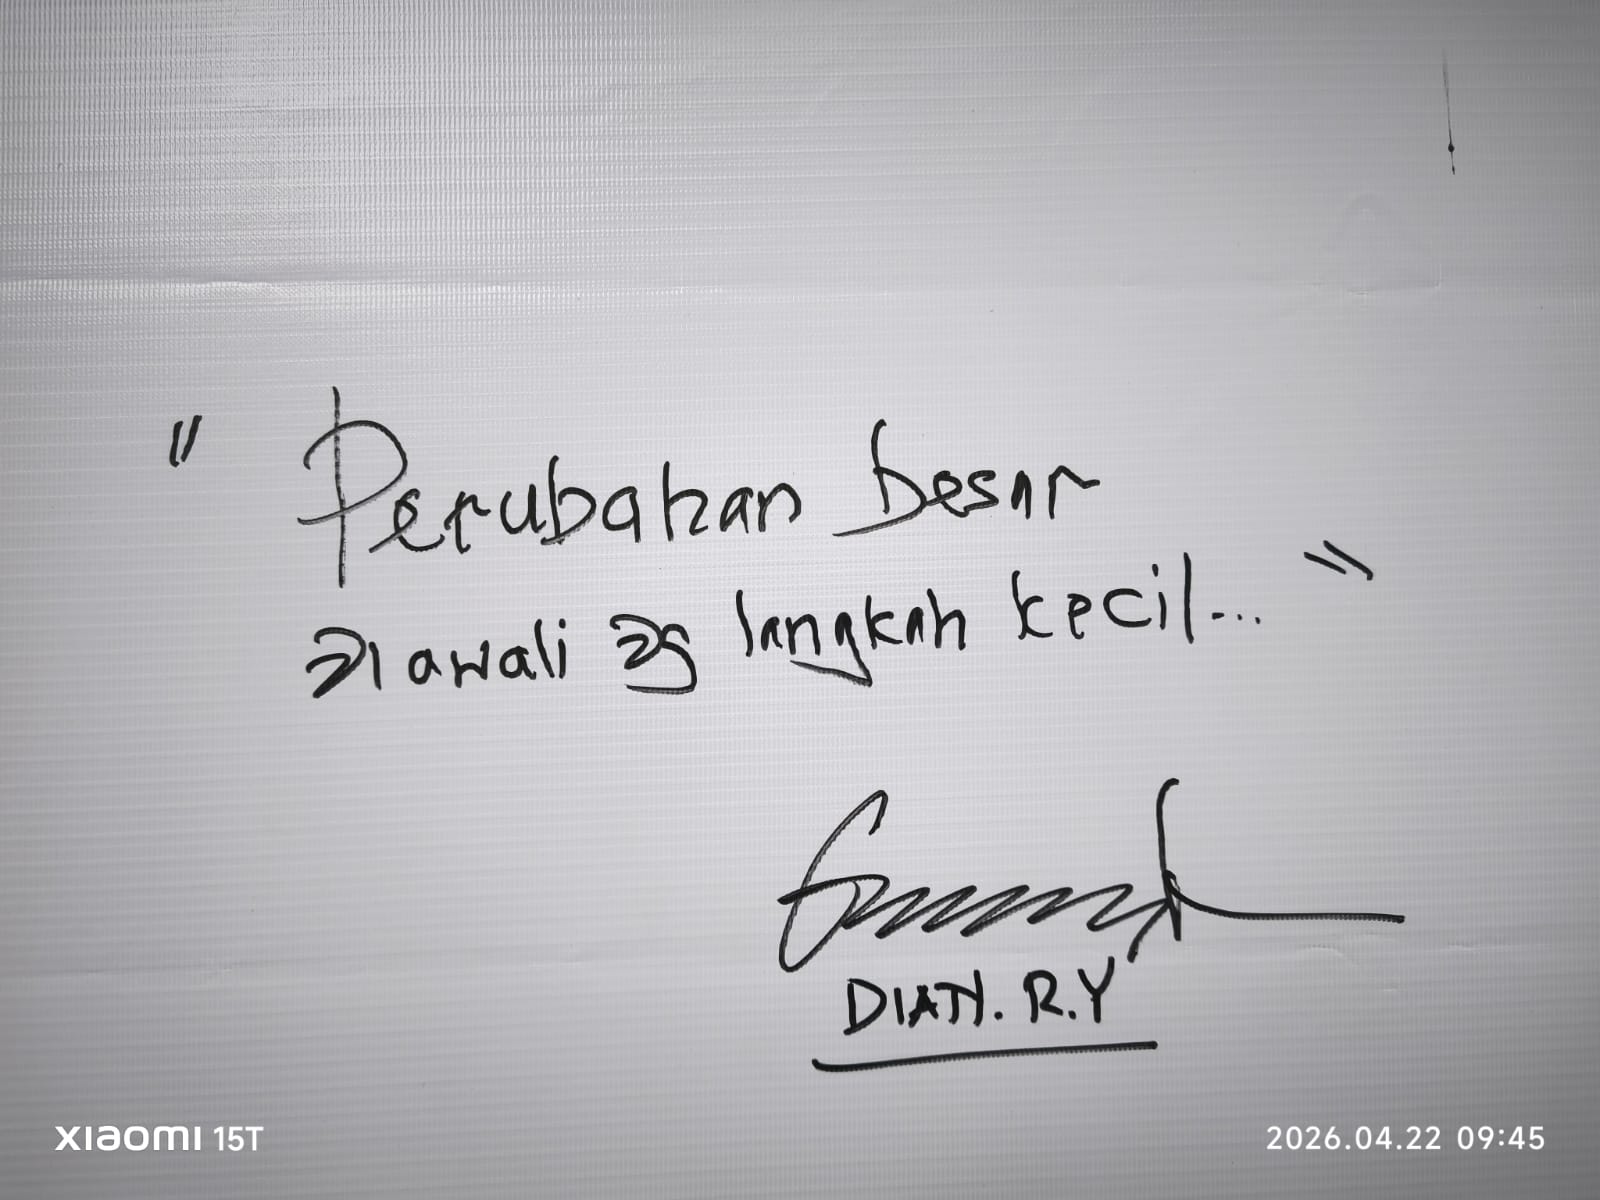 " Perubahan besar
diawali dg langkah kecil... "
DIAN. R.Y
XIAOMI 15T
2026.04.22 09:45